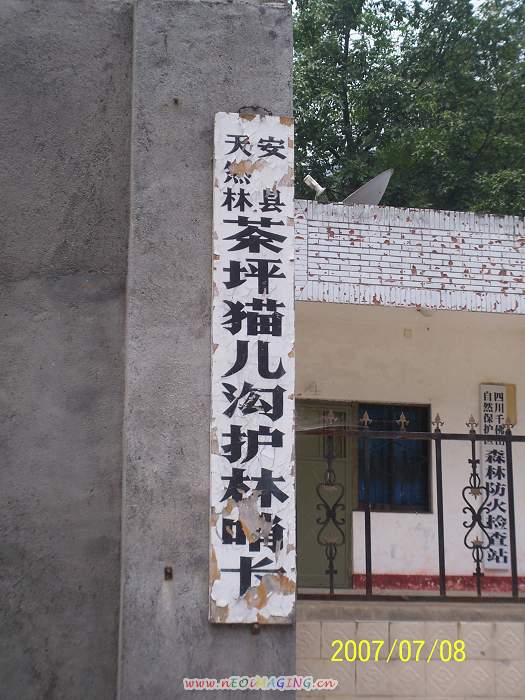 安县
天然林
茶坪猫儿沟护林哨卡
四川千佛山
自然保护区
森林防火检查站
2007/07/08
www.nEOiMAGING.cn